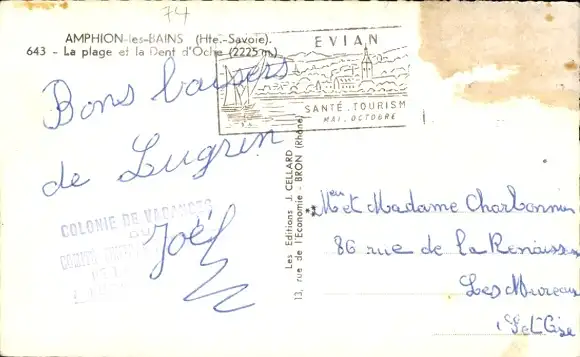 74
AMPHION-les-BAINS (Hte.-Savoie).
643 - La plage et la Dent d'Oche (2225 m)
EVIAN
SANTÉ. TOURISM
MAI. OCTOBRE
Bons baisers
de Lugrin
Joël
COLONIE DE VACANCES
DU
Les Editions J. CELLARD
13, rue de l'Economie - BRON (Rhône)
Mr et Madame Charbonnier
86 rue de la Renaiss
Les Mureau
S et Oise